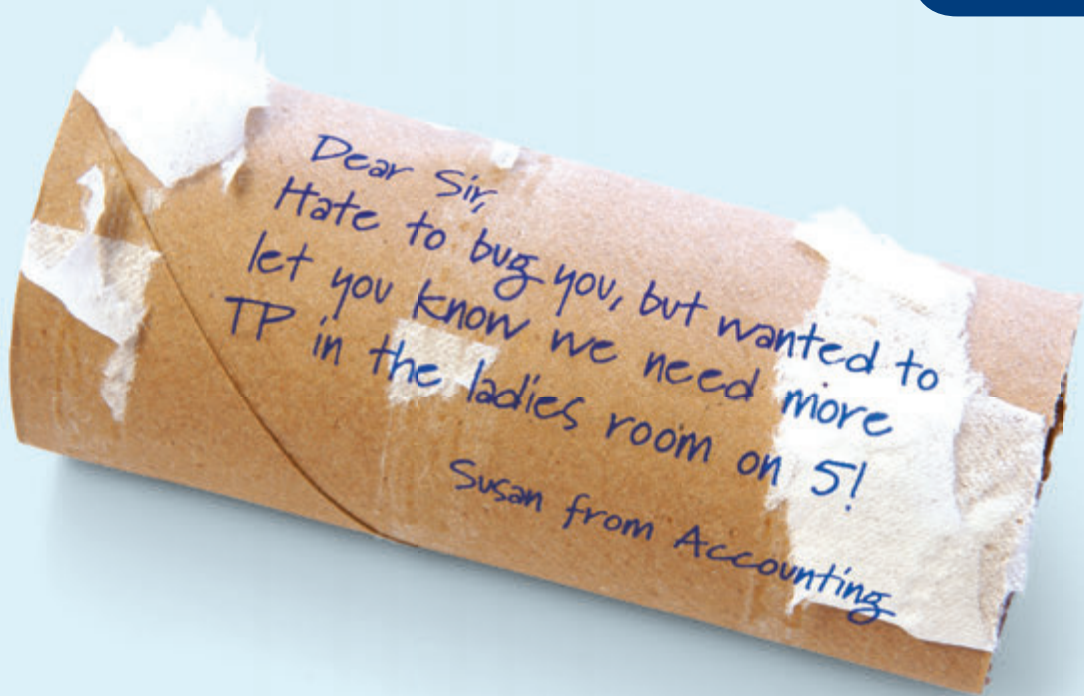 Dear Sir,
Hate to bug you, but wanted to
let you know we need more
TP in the ladies room on 5!
Susan from Accounting